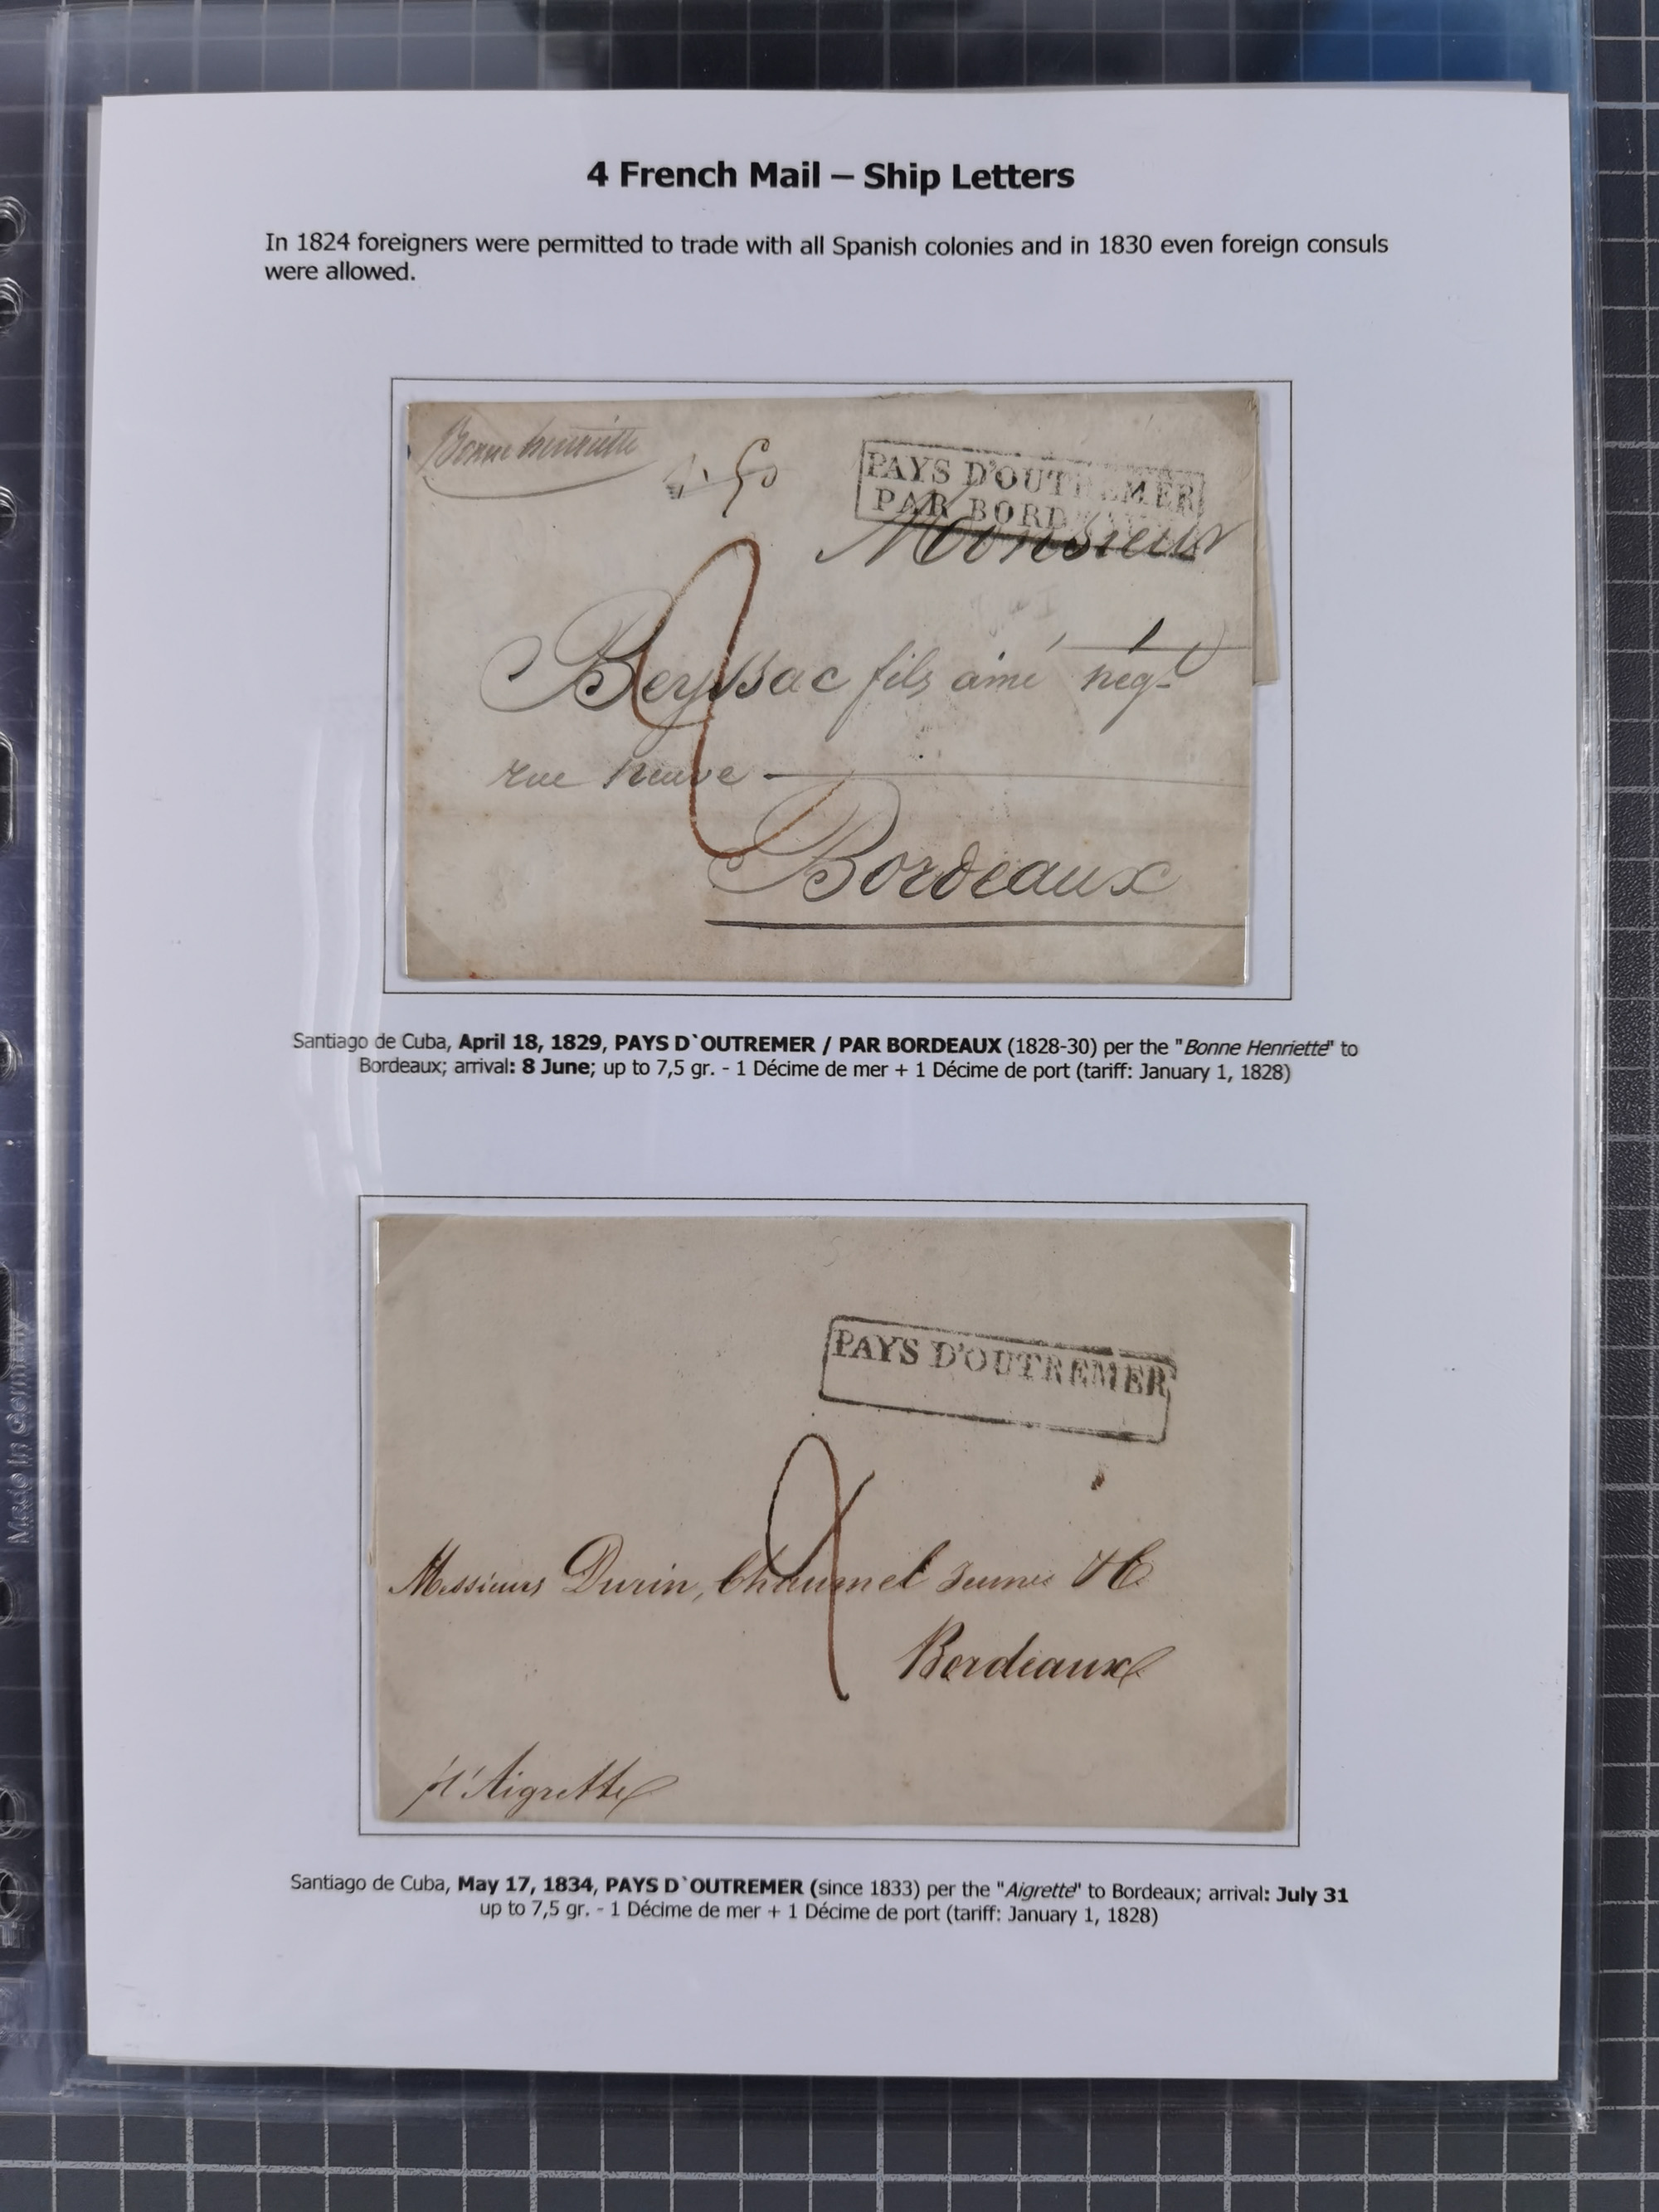 4 French Mail – Ship Letters
In 1824 foreigners were permitted to trade with all Spanish colonies and in 1830 even foreign consuls
were allowed.
Bonne henriette
PAYS D'OUTREMER
PAR BORDEAUX
Monsieur
Beyssac fils ainé négt
rue neuve
Bordeaux
2
Santiago de Cuba, April 18, 1829, PAYS D`OUTREMER / PAR BORDEAUX (1828-30) per the "Bonne Henriette" to
Bordeaux; arrival: 8 June; up to 7,5 gr. - 1 Décime de mer + 1 Décime de port (tariff: January 1, 1828)
PAYS D'OUTREMER
2
Messieurs Durin, Chaumel Jeune & C
Bordeaux
p l'Aigrette
Santiago de Cuba, May 17, 1834, PAYS D`OUTREMER (since 1833) per the "Aigrette" to Bordeaux; arrival: July 31
up to 7,5 gr. - 1 Décime de mer + 1 Décime de port (tariff: January 1, 1828)
Made in Germany